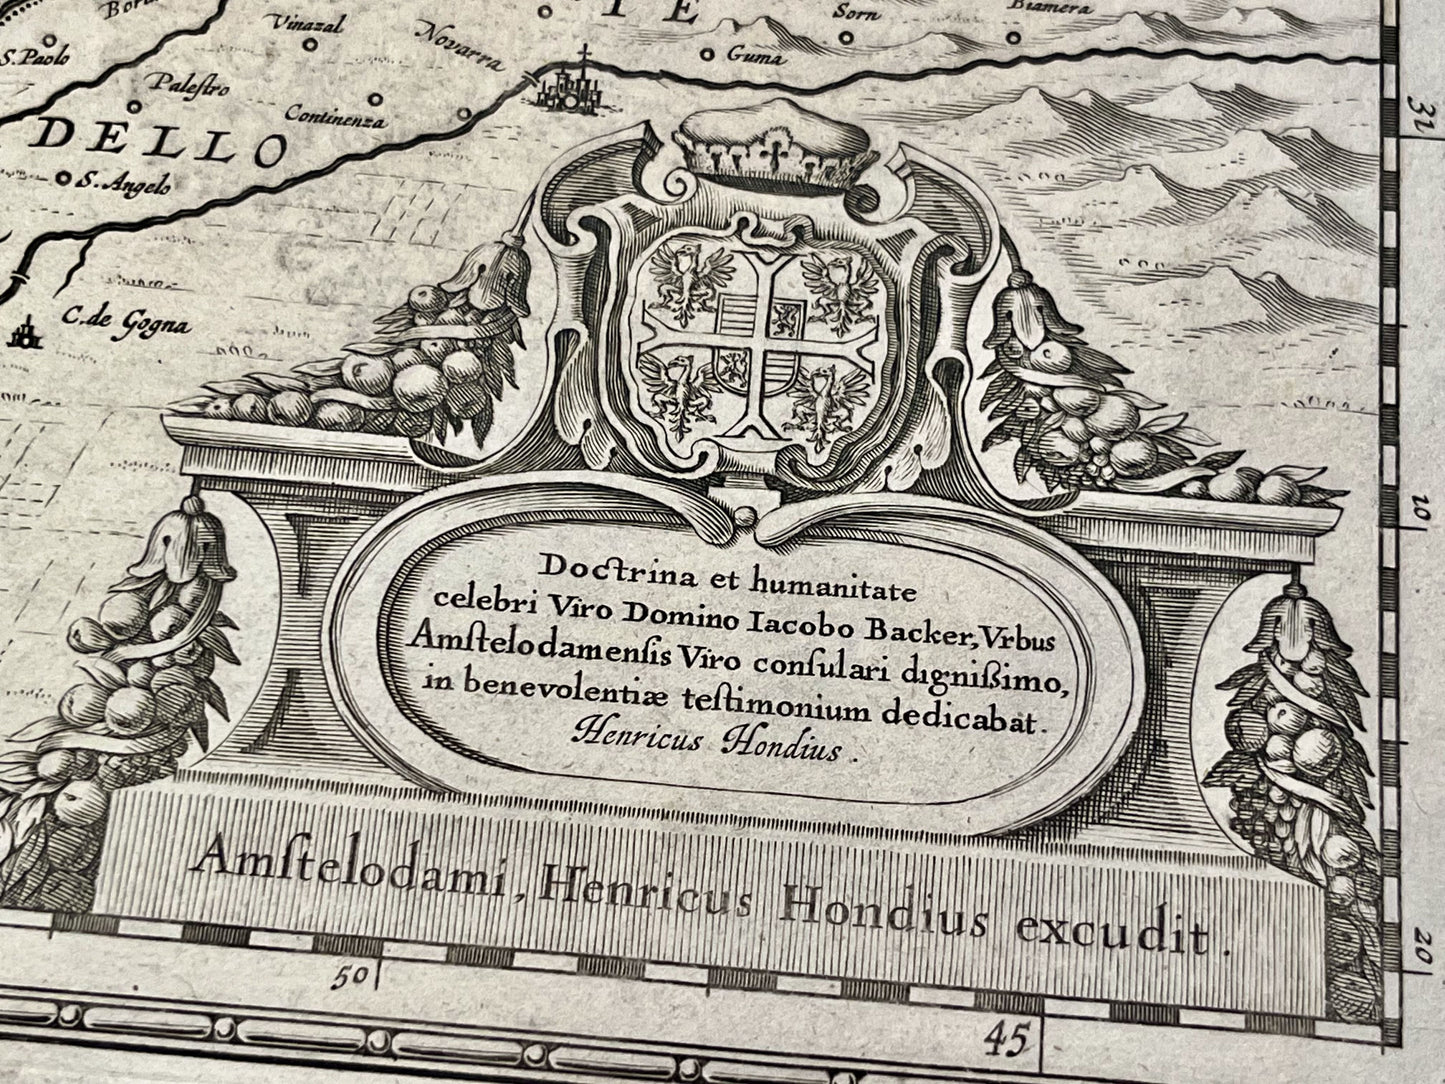 Vinazal
Novarra
Sorn
Biamera
S. Paolo
Guma
Paleſtro
Continenza
DELLO
S. Angelo
C. de Gogna
31
10
20
Doctrina et humanitate
celebri Viro Domino Iacobo Backer, Vrbus
Amſtelodamenſis Viro conſulari digniſsimo,
in benevolentiæ teſtimonium dedicabat.
Henricus Hondius.
Amſtelodami, Henricus Hondius excudit.
50
45